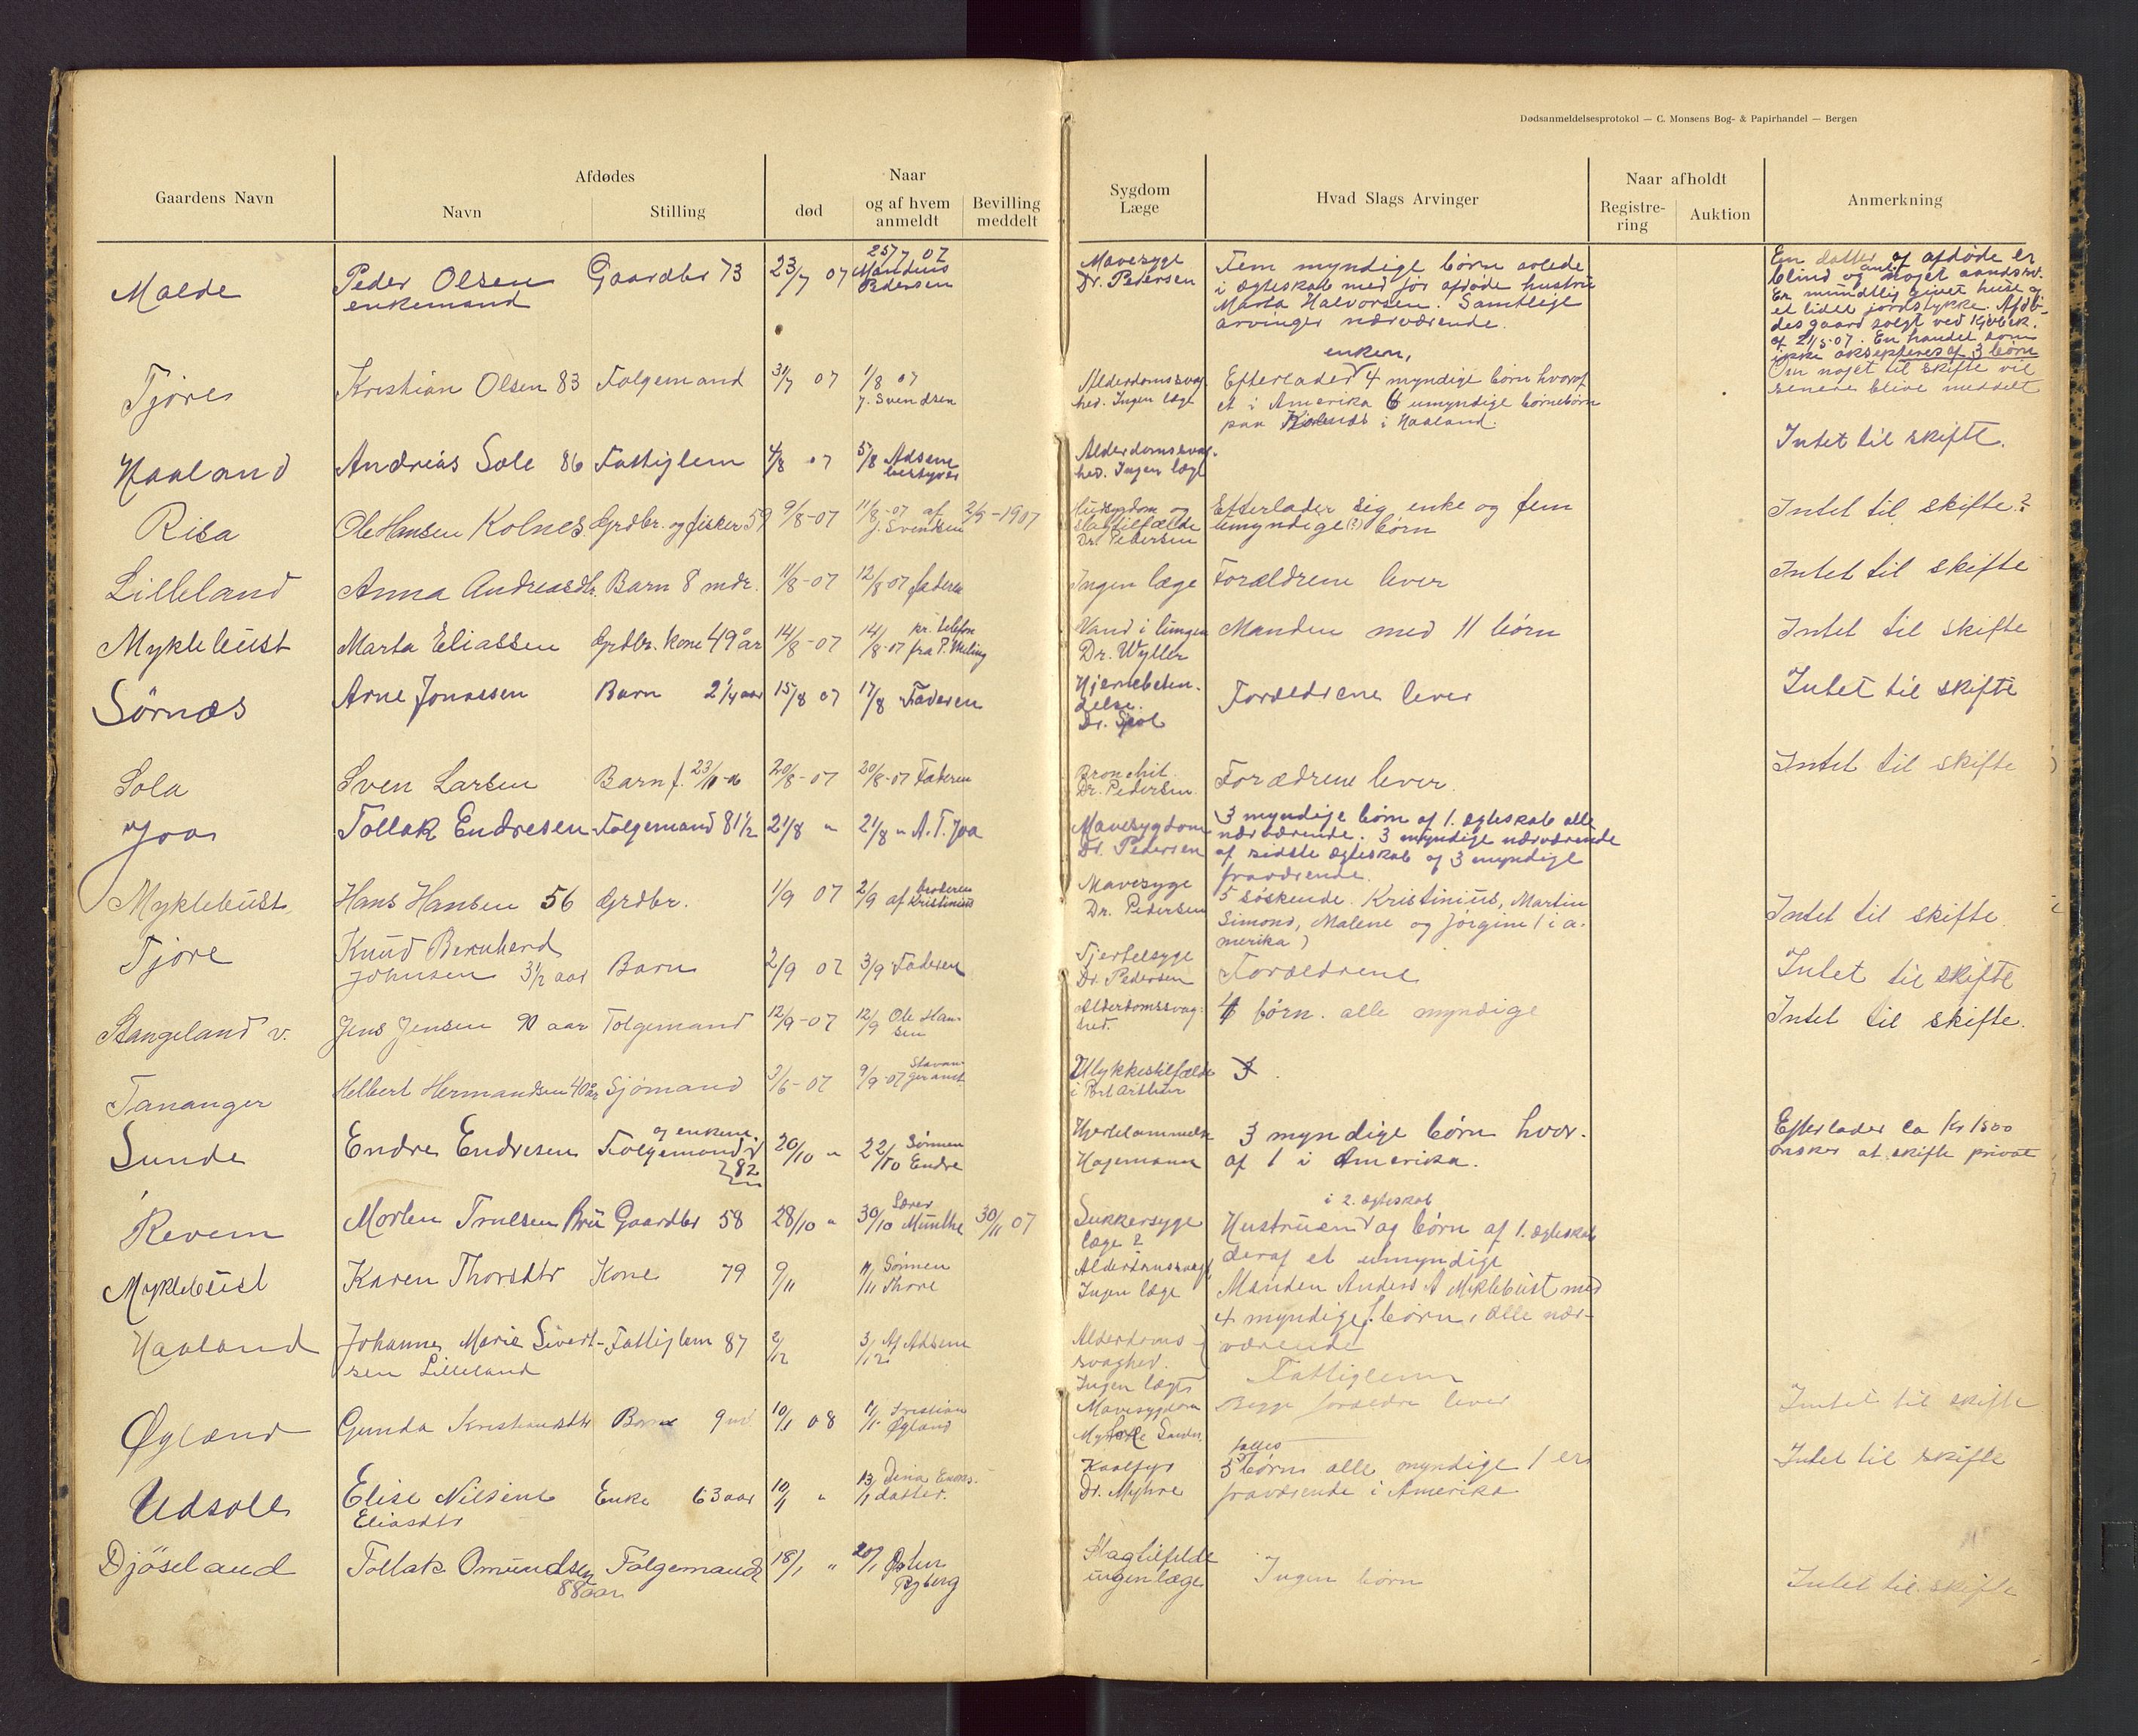 Dødsanmeldelsesprotokol — C. Monsens Bog- & Papirhandel — Bergen
Gaardens Navn
Afdødes
Navn
Stilling
Naar
død
og af hvem anmeldt
Bevilling meddelt
Sygdom
Læge
Hvad Slags Arvinger
Naar afholdt
Registrering
Auktion
Anmerkning
Malde
Peder Olsen
enkemand
Gaardbr 73
23/7 07
25/7 07
Mandius
Pedersen
Mavesyge
Dr. Pedersen
Fem myndige børn avlede
i ægteskab med før afdøde hustru
Marta Halvorsen. Samtlige
arvinger nærværende.
En datter af afdøde er
blind og noget aandssv.
Er mundtlig givet huse og
et lidet jordstykke. Afdø-
des gaard solgt ved kjøbek.
af 21/5-07. En handel som
ikke aksepteres af 3 børn
Om noget til skifte vil
senere blive meddelt
Tjøre
Kristian Olsen 83
Følgemand
31/7 07
1/8 07
J. Svendsen
Alderdomssvag-
hed. Ingen læge
enken,
Efterlader 4 myndige børn hvoraf
et i Amerika 6 umyndige børnebørn
paa i Haaland.
Haaland
Andreas Sole 86
Fattiglem
4/8 07
5/8 Adsene
bestyrer
Alderdomssvag-
hed. Ingen læge
Intet til skifte.
Risa
Ole Hansen Kolnes
Grdbr. og fisker 59
9/8-07
11/8-07 af
J. Svendsen
2/9-1907
Hudsygdom og
slagtilfælde
Dr. Pedersen
Efterlader sig enke og fem
umyndige (?) børn
Intet til skifte?
Lilleland
Anna Andreasdtr.
Barn 8 mdr.
11/8-07
12/8-07 faderen
Ingen læge
Forældrene lever
Intet til skifte
Myklebust
Marta Eliassen
Grdbr. kone 49 år
14/8-07
14/8-07 pr. telefon
fra P. Meling
Vand i lungen
Dr. Wyller
Manden med 11 børn
Intet til skifte
Sørnæs
Arne Jonassen
Barn 2 1/4 aar
15/8 07
17/8 Faderen
Hjernebeten-
delse.
Dr.
Forældrene lever
Intet til skifte
Sola
Sven Larsen
Barn f. 23/11-06
20/8-07
20/8-07 Faderen
Bronchit.
Dr. Pedersen.
Forædrene lever.
Intet til skifte
Joa
Tollak Endresen
Følgemand 81 1/2
21/8 "
21/8 " A. T. Joa
Mavesygdom
Dr. Pedersen
3 myndige børn af 1. ægteskab alle
nærværende. 3 myndige nærværende
af sidste ægteskab og 3 myndige
fraværende.
Myklebust
Hans Hansen 56
Grdbr.
1/9 07
2/9 af broderen
Kristinius
Mavesyge
Dr. Pedersen
5 søskende. Kristinius, Martin
Simond, Malene og Jørgine (i a-
merika)
Intet til skifte
Tjøre
Knud Bernhard
Johnsen 3 1/2 aar
Barn
2/9 07
3/9 Faderen
Hjertesyge
Dr. Pedersen
Forældrene
Intet til skifte
Stangeland v.
Jens Jensen 90 aar
Følgemand
12/9-07
12/9 Ole Han-
sen
Alderdomssvag-
hed.
4 børn. alle myndige
Intet til skifte.
Tananger
Helbert Hermandsen 40 år
Sjømand
3/6-07
9/9-07 Stavan-
ger amt
Ulykkestilfælde
i Port Arthur
Sunde
Endre Endresen
og enkem.
Følgemand
82
20/10 "
22/10 Sønnen
Endre
Hjertelammelse
Hagemann
3 myndige børn hvor-
af 1 i Amerika.
Efterlader ca kr 1500
ønsker at skifte privat
Revem
Morten Trulsen Bru
Gaardbr 58
28/10 "
30/10 Lærer
Munthe
30/11 07
Sukkersyge
læge ?
i 2. ægteskab
Hustruen og børn af 1. ægteskab
deraf et umyndige
Myklebust
Karen Thorsdtr
Kone 79
9/11
11/11 Sønnen
Thore
Alderdomssvagh.
Ingen læge
Manden Anders A Myklebust med
4 myndige børn, alle nær-
værende
Haaland
Johanne Marie Sivert-
sen Lilleland
Fattiglem 87
2/12
3/12 Af Adsene
Alderdoms
svaghed.
Ingen læge
Fattiglem
Øyland
Gunda Kristiansdtr
Barn 9 md
10/1 08
11/1 Kristian
Øyland
Mavesygdom
Begge forældre lever
Intet til skifte
Udsole
Elise Nilsine
Eliasdtr
Enke 63 aar
10/1 "
13/1 Dina
datter.
Koalfyr
Dr. Myhre
fælles
5 børn alle myndige 1 er
fraværende i Amerika
Intet til skifte
Djøseland
Tollak Omundsen
88 aar
Følgemand
18/1 "
20/1 Østen
Ryberg
Slagtilfelde
ingen læge
Ingen børn
Intet til skifte